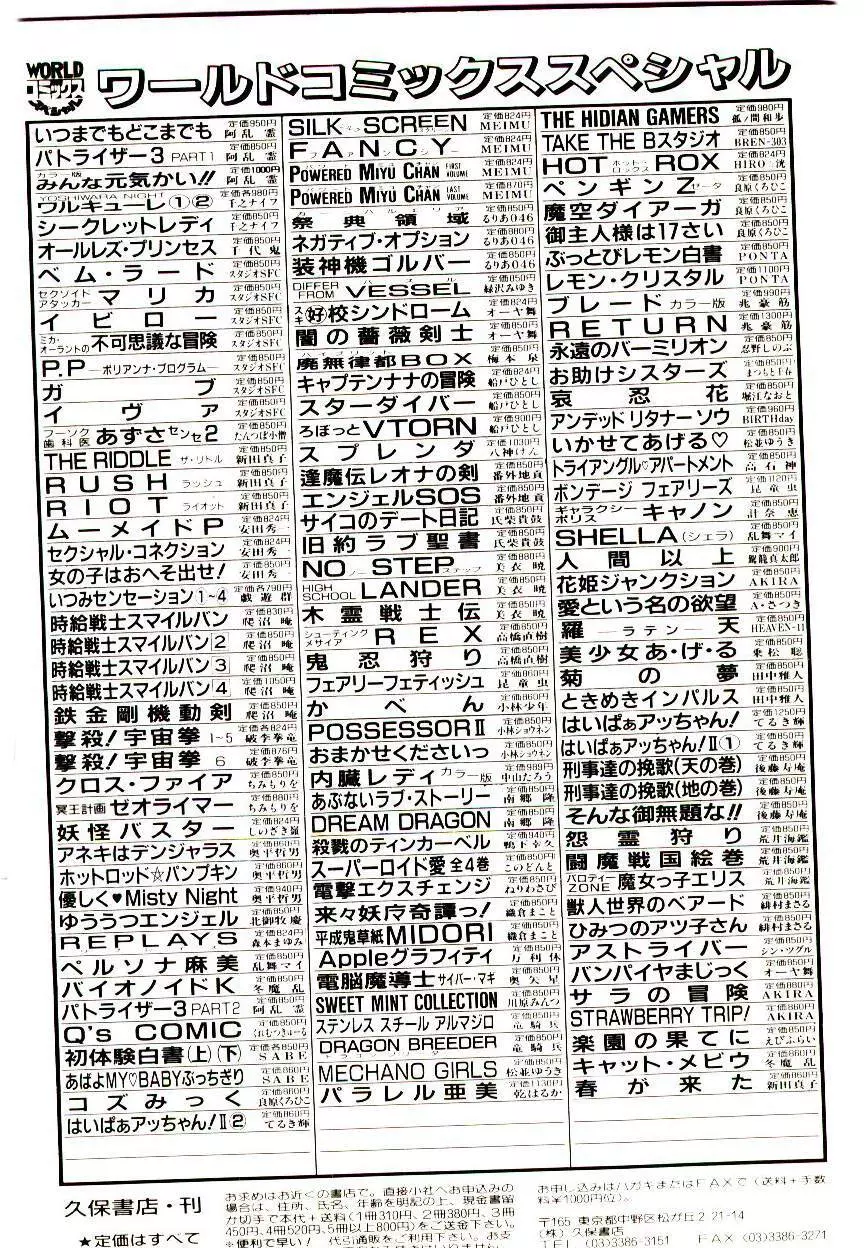 WORLD
コミックス
スペシャル
ワールドコミックススペシャル
いつまでもどこまでも 定価950円 阿乱霊
パトライザー3 PART1 定価850円 阿乱霊
カラー版 みんな元気かい!! 定価1000円 阿乱霊
YOSHIWARA NIGHT ワルキューレ①② 定価各980円 千之ナイフ
シークレットレディ 定価850円 千之ナイフ
オールレズ・プリンセス 定価850円 千代鬼
ベム・ラード 定価850円 スタジオSFC
セクソイドアタッカー マリカ 定価850円 スタジオSFC
イビロー 定価850円 スタジオSFC
ミカ・オーラントの不可思議な冒険 定価850円 スタジオSFC
P.P —ポリアンナ・プログラム— 定価850円 スタジオSFC
ガブ 定価850円 スタジオSFC
イヴァ 定価850円 スタジオSFC
フーゾク歯科医 あずさセンセ2 定価850円 たんつぼ小僧
THE RIDDLE ザ・リドル 定価850円 新田真子
RUSH ラッシュ 定価850円 新田真子
RIOT ライオット 定価850円 新田真子
ムーメイドP 定価824円 安田秀一
セクシャル・コネクション 定価824円 安田秀一
女の子はおへそ出せ! 定価850円 安田秀一
いつみセンセーション1~4 定価各790円 戯遊群
時給戦士スマイルバン 定価830円 爬沼庵
時給戦士スマイルバン2 定価850円 爬沼庵
時給戦士スマイルバン3 定価850円 爬沼庵
時給戦士スマイルバン4 定価1050円 爬沼庵
鉄金剛機動剣 定価850円 爬沼庵
撃殺!宇宙拳 1~5 定価各824円 破李拳竜
撃殺!宇宙拳 6 定価876円 破李拳竜
クロス・ファイア 定価850円 ちみもりを
冥王計画 ゼオライマー 定価880円 ちみもりを
妖怪バスター 定価824円 しのざき嶺
アネキはデンジャラス 定価860円 奥平哲男
ホットロッド☆パンプキン 定価850円 奥平哲男
優しく♥Misty Night 定価940円 奥平哲男
ゆううつエンジェル 定価850円 北御牧慶
REPLAYS 定価824円 森本まゆみ
ペルソナ麻美 定価850円 乱舞マイ
バイオノイドK 定価850円 冬魔乱
パトライザー3 PART2 定価850円 阿乱霊
Q's COMIC 定価850円 くれむつきゅーる
初体験白書(上)(下) 定価各850円 SABE
あばよMY♡BABYぶっちぎり 定価860円 SABE
コズみっく 定価860円 良原くろひこ
はいぱぁアッちゃん!Ⅱ② 定価860円 てるき輝
SILK SCREEN 定価824円 MEIMU
FANCY 定価824円 MEIMU
POWERED MIYU CHAN FIRST VOLUME 定価824円 MEIMU
POWERED MIYU CHAN LAST VOLUME 定価870円 MEIMU
祭典領域 定価850円 るりあ046
ネガティブ・オプション 定価880円 るりあ046
装神機ゴルバー 定価850円 るりあ046
DIFFER FROM VESSEL 定価850円 緑沢みゆき
スキ(好)校シンドローム 定価824円 オーヤ舞
闇の薔薇剣士 定価850円 オーヤ舞
廃無律都BOX 定価850円 梅本泉
キャプテンナナの冒険 定価824円 船戸ひとし
スターダイバー 定価850円 船戸ひとし
ろぼっとVTORN 定価900円 船戸ひとし
スプレンダ 定価1030円 八神けん
逢魔伝レオナの剣 定価850円 番外地貢
エンジェルSOS 定価850円 番外地貢
サイコのデート日記 定価850円 氏柴貴鼓
旧約ラブ聖書 定価850円 氏柴貴鼓
NO STEP 定価880円 美衣暁
HIGH SCHOOL LANDER 定価850円 美衣暁
木霊戦士伝 定価850円 美衣暁
シューティングメサイア REX 定価850円 高橋直樹
鬼忍狩り 定価850円 高橋直樹
フェアリーフェティッシュ 定価860円 昆童虫
かべん 定価860円 小林少年
POSSESSORⅡ 定価850円 小林ショウネン
おまかせくださいっ 定価850円 小林ショウネン
内臓レディ カラー版 定価989円 中山たろう
あぶないラブ・ストーリー 定価850円 南郷隆
DREAM DRAGON 定価850円 南郷隆
殺戮のティンカーベル 定価940円 鴨下幸久
スーパーロイド愛 全4巻 定価各850円 このどんと
電撃エクスチェンジ 定価850円 ねりわさび
来々妖奇譚っ! 定価850円 織倉まこと
平成鬼草紙MIDORI 定価850円 織倉まこと
Appleグラフィティ 定価850円 万利休
電脳魔導士 サイバー・マギ 定価850円 奥矢星
SWEET MINT COLLECTION 定価850円 川原みんつ
ステンレス スチール アルマジロ 定価850円 竜騎兵
DRAGON BREEDER 定価850円 竜騎兵
MECHANO GIRLS 定価860円 松並ゆうき
パラレル亜美 定価1130円 乾はるか
THE HIDIAN GAMERS 定価980円 孤ノ間和歩
TAKE THE Bスタジオ 定価850円 BREN-303
HOT ROX ホットロックス 定価824円 HIRO一洸
ペンギンZ ゼータ 定価850円 良原くろひこ
魔空ダイアーガ 定価850円 良原くろひこ
御主人様は17さい 定価850円 良原くろひこ
ぶっとびレモン白書 定価850円 PONTA
レモン・クリスタル 定価1100円 PONTA
ブレード カラー版 定価990円 兆豪筋
RETURN 定価1300円 兆豪筋
永遠のバーミリオン 定価850円 忍野しのぶ
お助けシスターズ 定価850円 まつもと千春
哀忍花 定価850円 堀江なおと
アンデッド リタナー ソウ 定価960円 BIRTHday
いかせてあげる♡ 定価850円 松並ゆうき
トライアングル♡アパートメント 定価850円 高石神
ボンデージ フェアリーズ 定価1120円 昆童虫
ギャラクシーポリス キャノン 定価850円 計奈恵
SHELLA(シェラ) 定価850円 乱舞マイ
人間以上 定価900円 鴛龍真太郎
花姫ジャンクション 定価850円 AKIRA
愛という名の欲望 定価850円 A・さつき
羅—ラテン—天 定価850円 HEAVEN-11
美少女あ・げ・る 定価850円 乗松聡
菊の夢 定価850円 田中雅人
ときめきインパルス 定価850円 田中雅人
はいぱぁアッちゃん! 定価1250円 てるき輝
はいぱぁアッちゃん!Ⅱ① 定価850円 てるき輝
刑事達の挽歌(天の巻) 定価850円 後藤寿庵
刑事達の挽歌(地の巻) 定価850円 後藤寿庵
そんな御無題な!! 定価850円 後藤寿庵
怨霊狩り 定価850円 荒井海鑑
闘魔戦国絵巻 定価850円 荒井海鑑
パロティーZONE 魔女っ子エリス 定価850円 荒井海鑑
獣人世界のベアード 定価850円 緋村まさる
ひみつのアツ子さん 定価850円 緋村まさる
アストライバー 定価850円 シン・ツグル
バンパイヤまじっく 定価850円 オーヤ舞
サラの冒険 定価860円 AKIRA
STRAWBERRY TRIP! 定価860円 AKIRA
楽園の果てに 定価850円 えびふらい
キャット・メビウ 定価860円 冬魔乱
春が来た 定価860円 新田真子
久保書店・刊
★定価はすべて
お求めはお近くの書店で。直接小社へお申込みの
場合は、住所、氏名、年齢を明記の上、現金書留
か切手で本代+送料(1冊310円、2冊380円、3冊
450円、4冊520円、5冊以上800円)をご送金下さい。
※便利で早い! 代引通販をご利用下さい。お支
お申し込みはハガキまたはFAXで(送料+手数
料¥1000円位)。
〒165 東京都中野区松が丘2-21-14
(株)久保書店
TEL (03)3386-3151 FAX (03)3386-3271